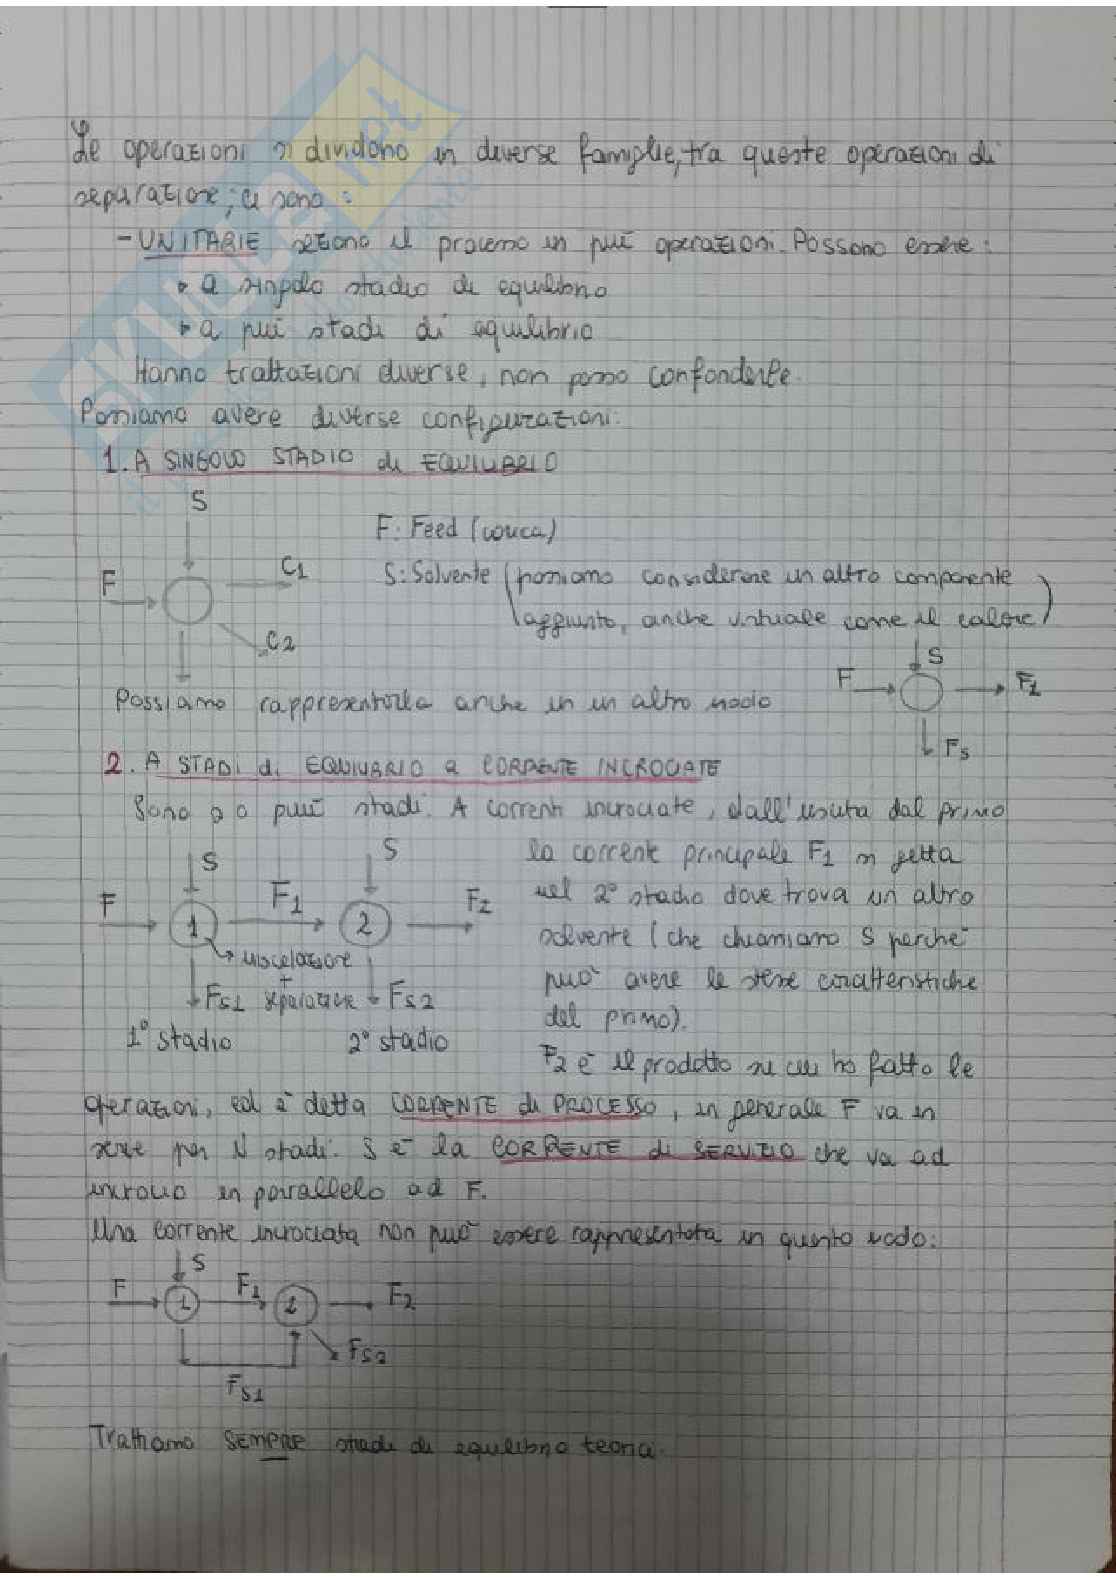 Le operazioni si dividono in diverse famiglie, tra queste operazioni di
separazione; ci sono:
- UNITARIE seziono il processo in più operazioni. Possono essere:
• a singolo stadio di equilibrio
• a più stadi di equilibrio
Hanno trattazioni diverse, non posso confonderle.
Possiamo avere diverse configurazioni:
1. A SINGOLO STADIO di EQUILIBRIO
S
F: Feed (carica)
F
C1
S: Solvente (possiamo considerare un altro componente
aggiunto, anche virtuale come il calore)
C2
S
F
F1
Possiamo rappresentarla anche in un altro modo
FS
2. A STADI di EQUILIBRIO a CORRENTE INCROCIATE
Sono 2 o più stadi. A correnti incrociate, dall'uscita dal primo
S
S
la corrente principale F1 si getta
F
F1
F2
nel 2° stadio dove trova un altro
1
2
solvente (che chiamiamo S perché
miscelazione
+
può avere le stesse caratteristiche
FS1 separazione FS2
del primo).
1° stadio
2° stadio
F2 è il prodotto su cui ho fatto le
operazioni, ed è detta CORRENTE di PROCESSO, in generale F va in
serie per N stadi. S è la CORRENTE di SERVIZIO che va ad
incrocio in parallelo ad F.
Una corrente incrociata non può essere rappresentata in questo modo:
S
F
1
F1
2
F2
FS2
FS1
Trattiamo SEMPRE stadi di equilibrio teorici.
SKUOLA.net